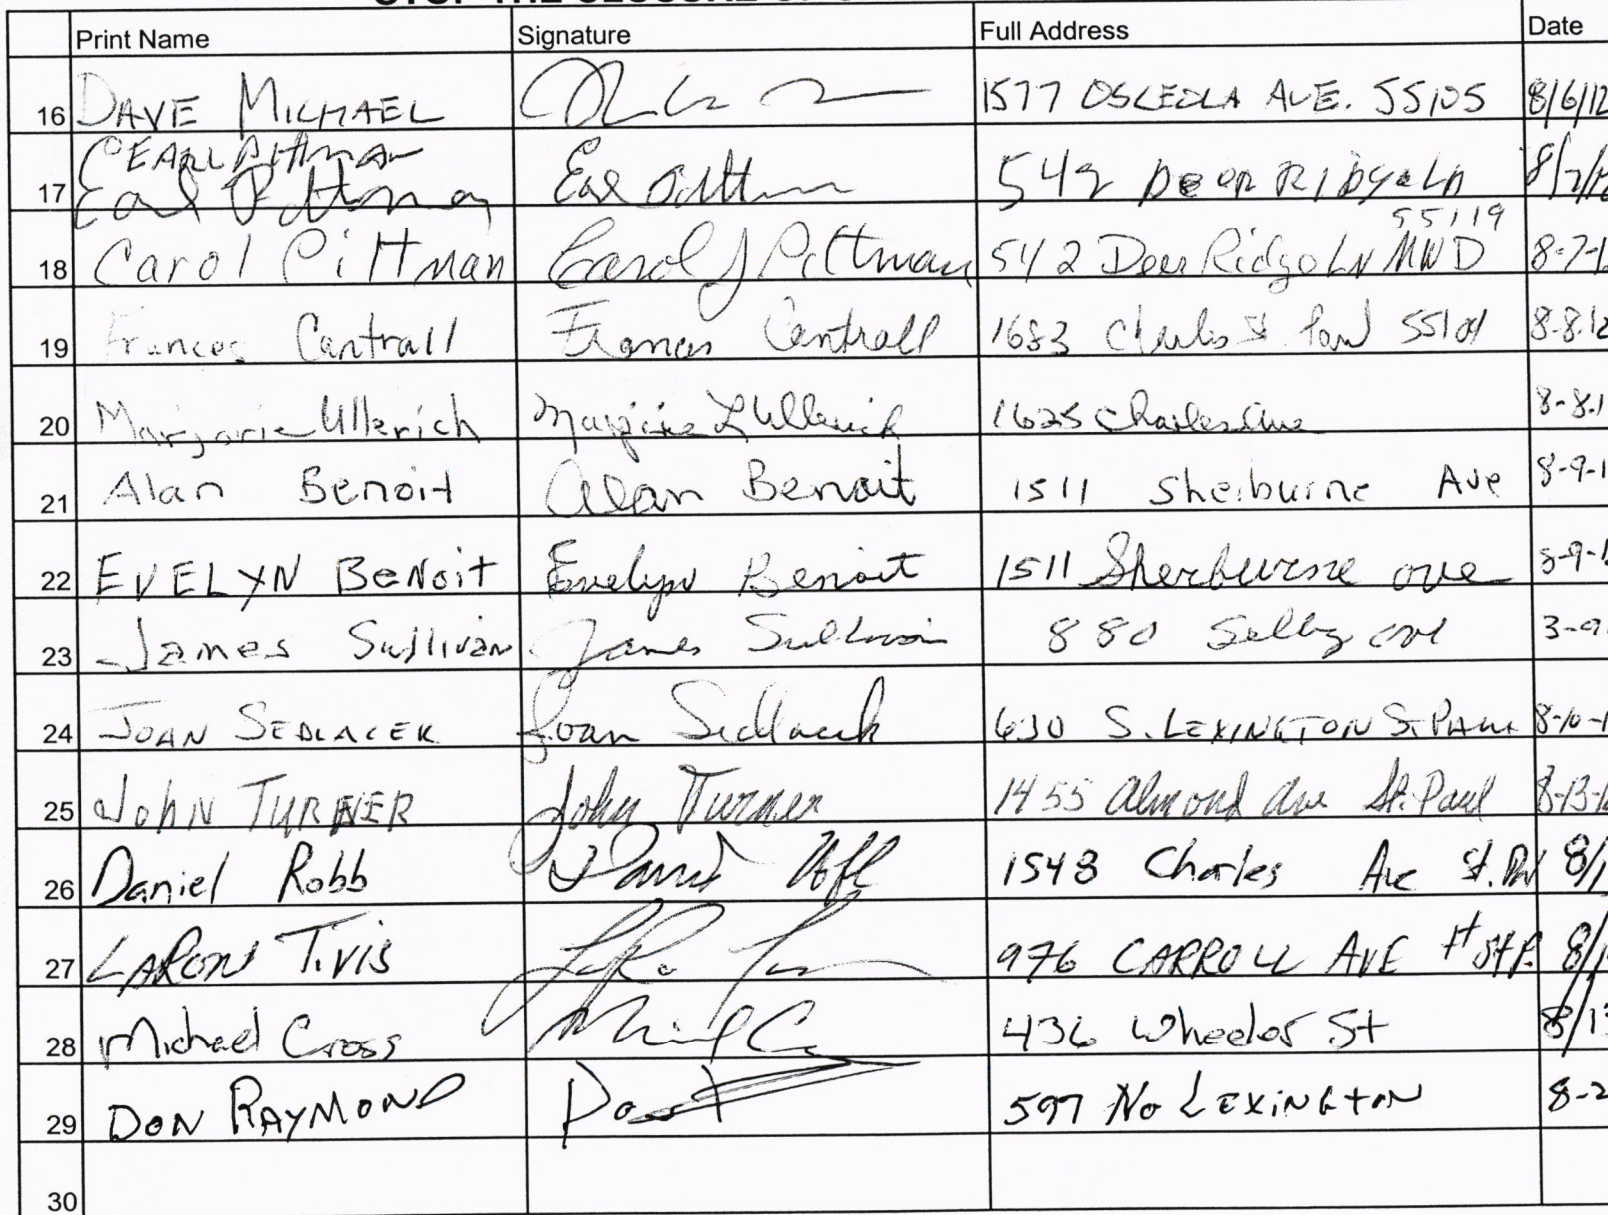 Print Name Signature Full Address Date
16 DAVE MICHAEL 1577 OSCEOLA AVE. 55105 8/6/12
EARL Pittman
17 Earl Pittman Earl Pittman 542 Deer Ridge Ln 8/7/12
55119
18 Carol Pittman Carol J Pittman 542 Deer Ridge Ln MWD 8-7-1
19 Frances Cantrall Frances Cantrall 1683 Charles St Paul 55104 8-8-12
20 Marjorie Ullerich Marjorie L Ullerich 1625 Charles Ave 8-8-1
21 Alan Benoit Alan Benoit 1511 Sherburne Ave 8-9-1
22 EVELYN BeNoit Evelyn Benoit 1511 Sherburne ave 8-9-1
23 James Sullivan James Sullivan 880 Selby 9
24 JOAN SEDLACEK Joan Sedlacek 630 S. LEXINGTON St. PAUL 8-10-1
25 JOHN TURNER John Turner 1455 Almond Ave St. Paul 8-13-1
26 Daniel Robb 1548 Charles Ave St. Paul 8/1
27 LARON TIVIS 976 CARROLL AVE 8/1
28 Michael Cross 436 Wheeler St 8/13
29 DON RAYMOND 597 No LEXINGTON 8-2
30